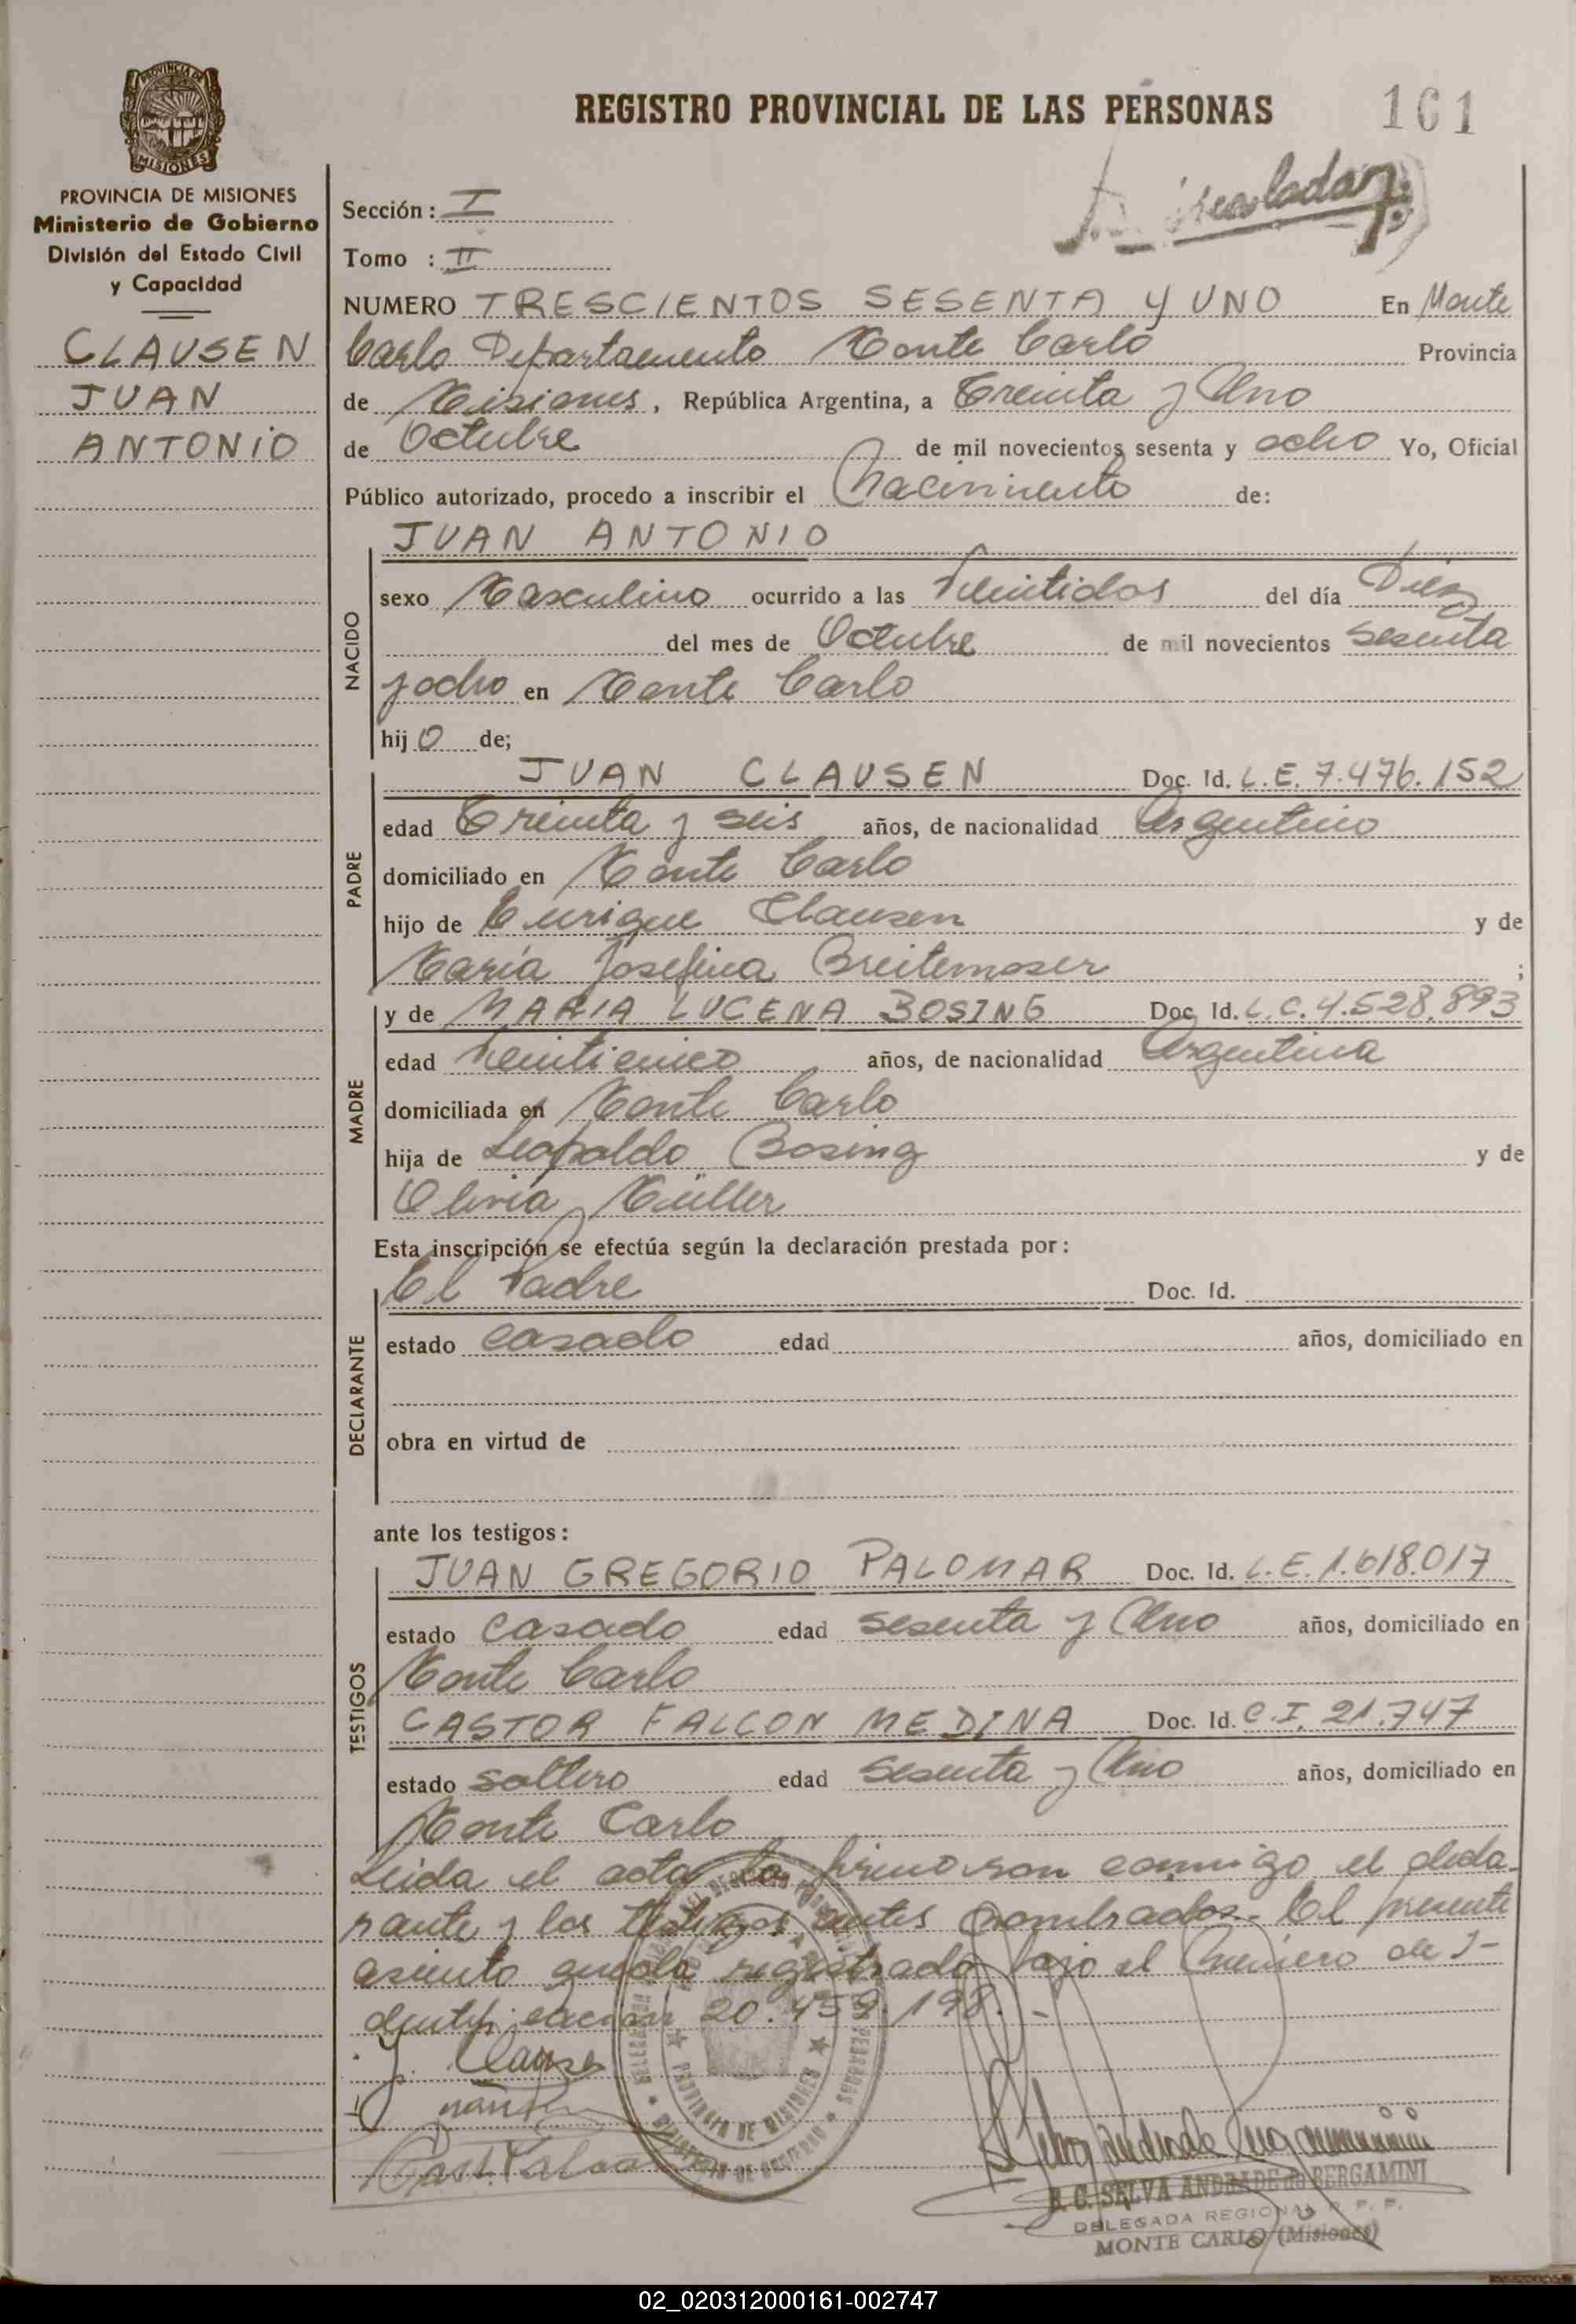 REGISTRO PROVINCIAL DE LAS PERSONAS
161
PROVINCIA DE
MISIONES
PROVINCIA DE MISIONES
Ministerio de Gobierno
División del Estado Civil
y Capacidad
CLAUSEN
JUAN
ANTONIO
Sección: I
Tomo : II
NUMERO TRESCIENTOS SESENTA Y UNO En Monte
Carlo Departamento Monte Carlo Provincia
de Misiones, República Argentina, a Treinta y Uno
de Octubre de mil novecientos sesenta y ocho Yo, Oficial
Público autorizado, procedo a inscribir el Nacimiento de:
JUAN ANTONIO
NACIDO
sexo Masculino ocurrido a las Veintidos del día Diez
del mes de Octubre de mil novecientos Sesenta
y ocho en Monte Carlo
hijo de;
PADRE
JUAN CLAUSEN Doc. Id. L.E. 7.476.152
edad Treinta y seis años, de nacionalidad Argentino
domiciliado en Monte Carlo
hijo de Enrique Clausen y de
María Josefina Breitemoser ;
MADRE
y de MARIA LUCENA BOSING Doc. Id. L.C. 4.528.893
edad Veinticinco años, de nacionalidad Argentina
domiciliada en Monte Carlo
hija de Leopoldo Bosing y de
Olivia Müller
Esta inscripción se efectúa según la declaración prestada por:
DECLARANTE
El Padre Doc. Id.
estado casado edad años, domiciliado en
obra en virtud de
ante los testigos:
TESTIGOS
JUAN GREGORIO PALOMAR Doc. Id. L.E. 1.618.017
estado Casado edad Sesenta y Uno años, domiciliado en
Monte Carlo
CASTOR FALCON MEDINA Doc. Id. C.I. 21.747
estado Soltero edad Sesenta y Uno años, domiciliado en
Monte Carlo
Leida el acta la firmaron conmigo el decla-
rante y los testigos antes nombrados. El presente
asiento queda registrado bajo el Número de I-
dentificación 20.459.198.-
J. Clausen
PROVINCIA DE MISIONES
B. C. SELVA ANDRADE de BERGAMINI
DELEGADA REGIONAL R. P. P.
MONTE CARLO (Misiones)
02_020312000161-002747